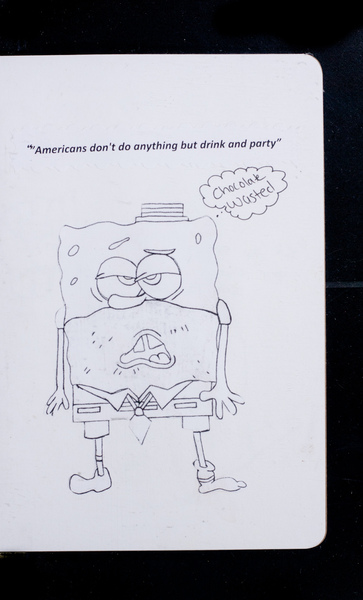 "'Americans don't do anything but drink and party"
Chocolate
Wasted